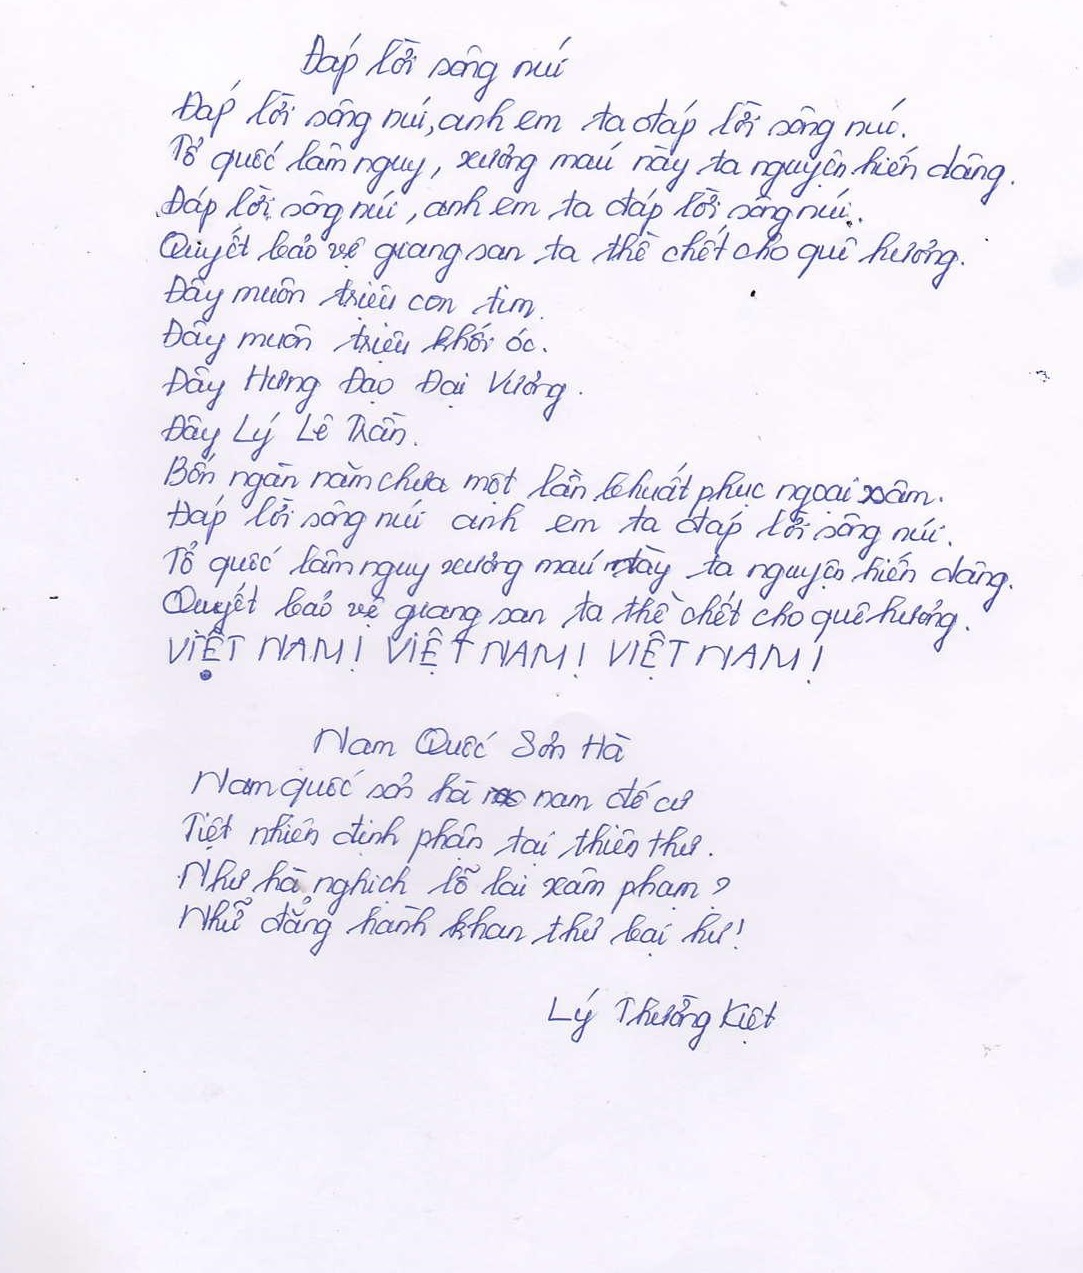 Đáp lời sông núi
Đáp lời sông núi, anh em ta đáp lời sông núi.
Tổ quốc lâm nguy, xương máu này ta nguyện hiến dâng.
Đáp lời sông núi, anh em ta đáp lời sông núi.
Quyết bảo vệ giang san ta thề chết cho quê hương.
Đây muôn triệu con tim.
Đây muôn triệu khối óc.
Đây Hưng Đạo Đại Vương.
Đây Lý Lê Trần.
Bốn ngàn năm chưa một lần khuất phục ngoại xâm.
Đáp lời sông núi anh em ta đáp lời sông núi.
Tổ quốc lâm nguy xương máu này ta nguyện hiến dâng.
Quyết bảo vệ giang san ta thề chết cho quê hương.
VIỆT NAM! VIỆT NAM! VIỆT NAM!
Nam Quốc Sơn Hà
Nam quốc sơn hà nam đế cư
Tiệt nhiên định phận tại thiên thư.
Như hà nghịch lỗ lai xâm phạm?
Nhữ đẳng hành khan thứ bại hư!
Lý Thường Kiệt